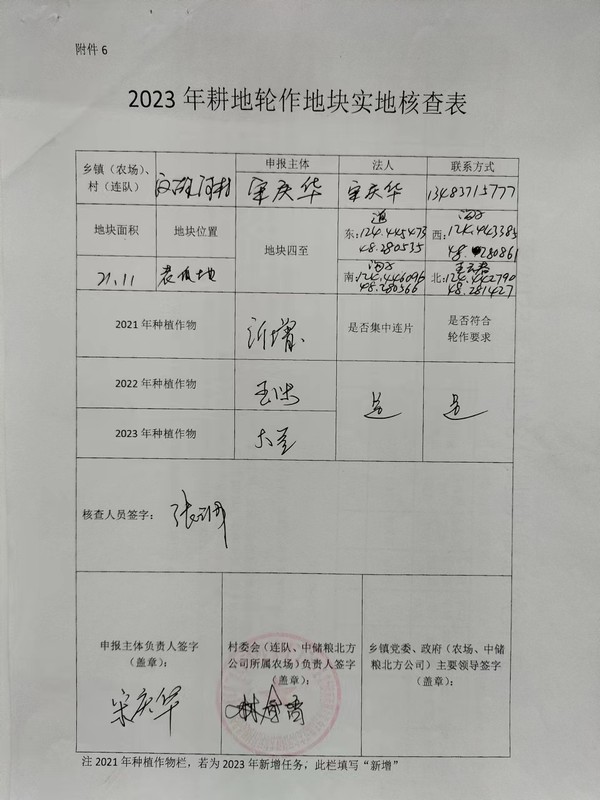 附件 6
2023 年耕地轮作地块实地核查表
乡镇（农场）、村（连队）
申报主体
法人
联系方式
宋庆华
宋庆华
13483715777
地块面积
地块位置
地块四至
道
东：124.445473
48.280535
沟子
西：124.443385
48.280861
21.11
南：124.446096
48.280566
北：124.442790
48.281427
2021 年种植作物
新增
是否集中连片
是否符合轮作要求
2022 年种植作物
玉米
是
是
2023 年种植作物
大豆
核查人员签字：
申报主体负责人签字（盖章）：
宋庆华
村委会（连队、中储粮北方公司所属农场）负责人签字（盖章）：
乡镇党委、政府（农场、中储粮北方公司）主要领导签字（盖章）：
注 2021 年种植作物栏，若为 2023 年新增任务，此栏填写“新增”